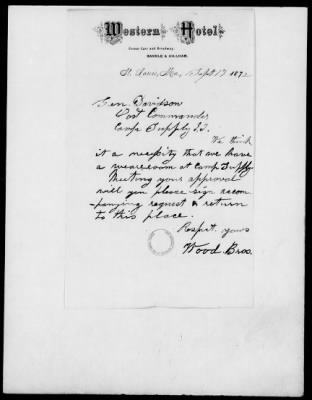 Western Hotel,
Corner Carr and Broadway,
St. Louis, Mo, Sept 13 1872
Gen. Davidson
Post Commander
Camp Supply I.T.
We think
it a necessity that we have
a wareroom at Camp Supply
Meeting your approval
will you please sign accom
-panying request & return
to this place.
Respect. yours
Wood Bros.